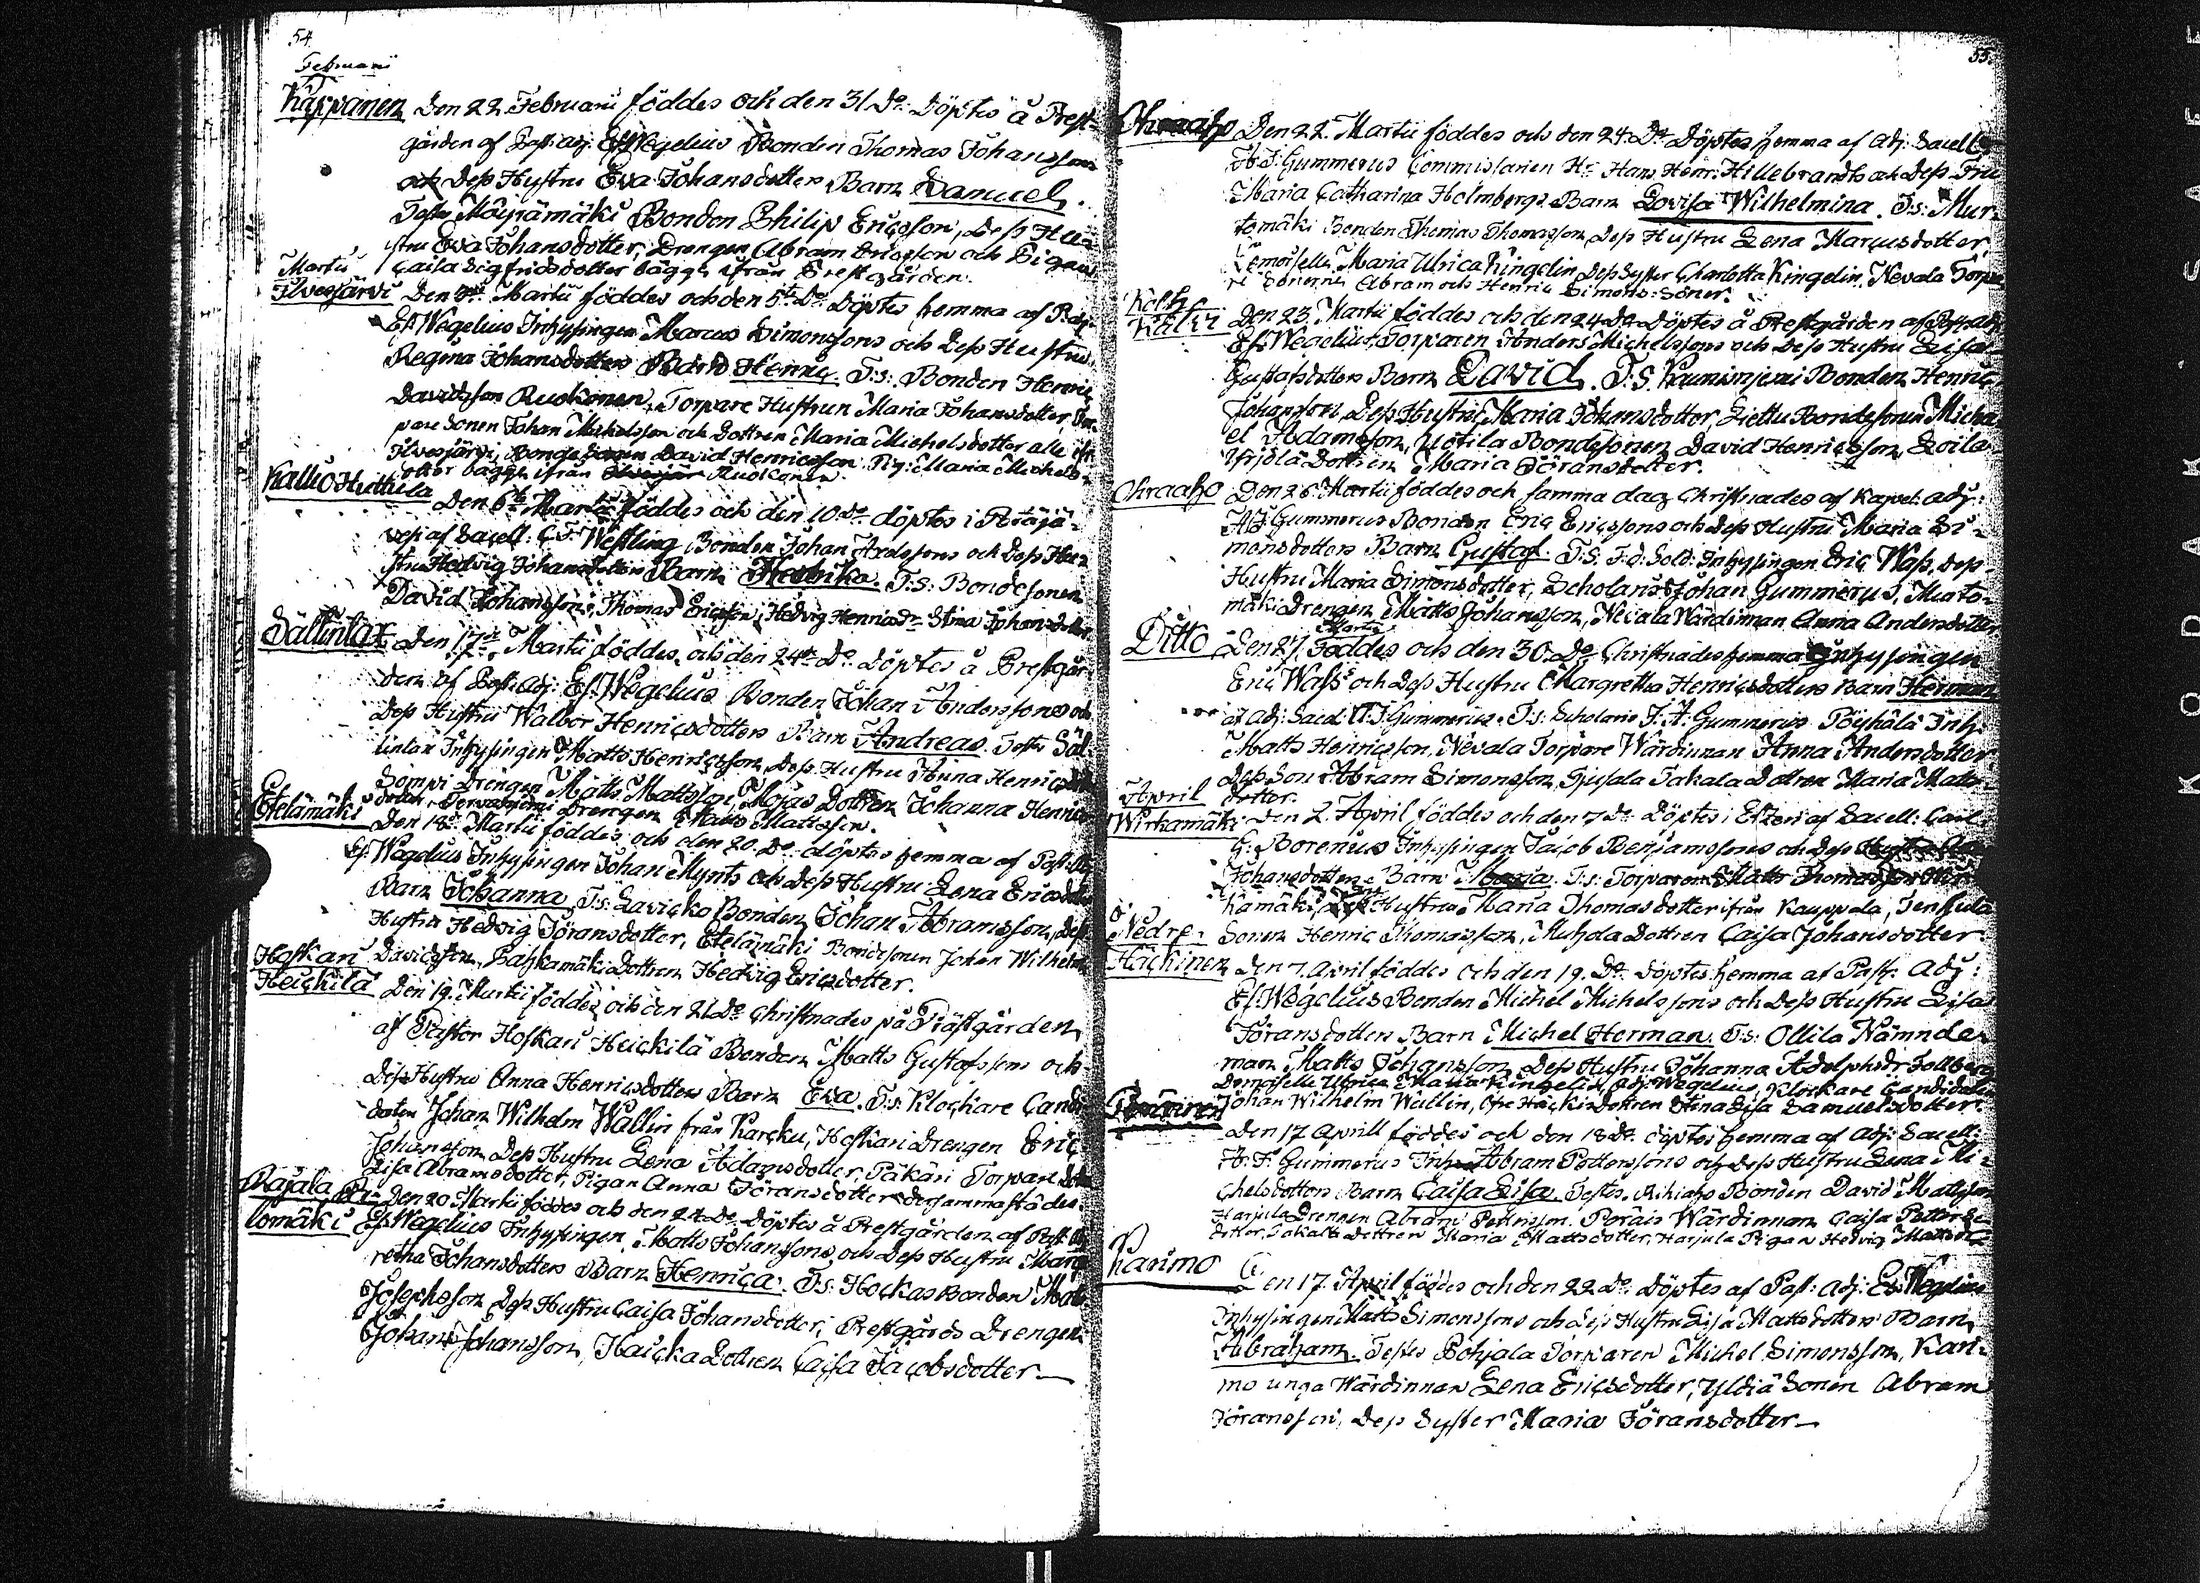 54.
Februarii
Käppänen Den 22 Februarii föddes och den 31 Do. Döptes å Prest-
gården af Past: Adj: Ef. Wegelius Bonden Thomas Johansson
och Dess Hustru Eva Johansdotters Barn Samuel.
Testes Möyrämäki Bonden Philip Ericsson, Dess Hu-
stru Eva Johansdotter, Drengen Abram Ericsson och Pigan
Caisa Sigfridsdotter bägge ifrån Prestgården.
Martii
Ilvesjärvi Den Martii föddes och den 5te Do. Döptes hemma af P. Adj:
Ef. Wegelius Inhysingen Marcus Simonssons och Dess Hustru
Regina Johansdotters Barn Henric. T:s: Bonden Henric
Davidsson Ruokonen, Torpare Hustrun Maria Johansdotter, Tor-
pare Sonen Johan Michelsson och Dottren Maria Michelsdotter alla ifr.
Ilvesjärvi, Bonde Sonen David Henricsson Pig: Maria Michels-
dotter bägge ifrån Ruokonen.
Kallio Huttula Den 6te Martii föddes och den 10 Do. döptes i Räjä-
vesi af Sacell: C. F. Westling Bonden Johan Axelssons och Dess Hu-
stru Hedvig Johansdotters Barn Fredrika. T.S: Bondesonen
David Johansson, Thomas Ericsson, Hedvig Henricsdr Stina Johansdotter
Sällintax Den 17de Martii föddes och den 24de Do. Döptes å Prestgår-
den af Past: Adj: Ef. Wegelius Bonden Johan Anderssons och
Dess Hustru Walbor Henricsdotters Barn Andreas. Testes Säl-
lintax Inhysingen Matts Henricsson, Dess Hustru Anna Henricsdotter
Sompi Drengen Matts Mattsson, Mojas Dottren Johanna Henrics-
dotter, Drengen Matts Mattsson.
Etelämäki Den 18de Martii föddes och den 20. Do döptes hemma af Past: Adj
Ef. Wegelius Inhysingen Johan Mynts och Dess Hustru Lena Ericsdotters
Barn Johanna. T:s: Lavicko Bonden Johan Abramsson, Dess
Hustru Hedvig Jöransdotter, Etelämäki Bondesonen Johan Wilhelm
Davidsson, Dottren Hedvig Ericsdotter.
Hoskari
Heickilä Den 19. Martii föddes och den 21 Do Christnades på Prästgården
af Pastor Hoskari Heickilä Bonden Matts Gustafssons och
Dess Hustru Anna Henricsdotters Barn Eva. T:s: Klockare Candi-
daten Johan Wilhelm Wallin från Karcku, Hoskari Drengen Eric
Johansson Dess Hustru Lena Adamsdotter, Päkäri Torpare
Lisa Abramsdotter, Pigan Anna Jöransdotter dersammastädes.
Rajala Pi- Den 20 Martii föddes och den 24 Do. Döptes å Prestgården af Past: Adj
lomäki Ef. Wegelius Inhysingen Matts Johanssons och Dess Hustru Marg-
retha Johansdotters Barn Henrica. T:s: Hockas Bonden Matts
Josephsson Dess Hustru Caisa Johansdotter, Prestgårds Drengen
Johan Johansson, Haicka Dottren Caisa Jacobsdotter
55.
Ohraaho Den 22. Martii föddes och den 24. Do Döptes hemma af Adj: Sacell
A. J. Gummerus Commissarien Hr Hans Henr: Hillebrandts och Dess Fru
Maria Catharina Holmbergs Barn Lovisa Wilhelmina. T:s: Mur-
tomäki Bonden Thomas Thomasson Dess Hustru Lena Marcusdotter
Demoiselle Maria Ulrica Kingelin Dess Syster Charlotta Kingelin, Nevala Torpa-
re Sönerne Abram och Henric Simons Söner.
Den 23. Martii föddes och den 24 Do Döptes å Prestgården af Past: Adj:
Ef. Wegelius Torparen Anders Michelssons och Dess Hustru Lisa
Gustafsdotters Barn David. T.S. Bonden Henric
Johansson Dess Hustru Maria Johansdotter, Bondesonen Micha-
el Adamsson, Bondesonen David Henricsson,
Dottren Maria Jöransdotter.
Ohraaho Den 26 Martii föddes och samma dag Christnades af Kapel: Adj:
A. J. Gummerus Bonden Eric Ericssons och Dess Hustru Maria Si-
monsdotters Barn Gustaf. T.S. F.d. Sold: Inhysingen Eric Wass, Dess
Hustru Maria Simonsdotter, Scholaris Johan Gummerus, Murto-
mäki Drengen Matts Johansson, Nevala Wärdinnan Anna Andersdotter
Ditto Den 27. Martii Föddes och den 30. Do Christnades hemma Inhysingen
Eric Wass's och Dess Hustru Margretha Henricsdotters Barn Herman
af Adj: Sacell: A. J. Gummerus. T:s: Scholaris J. A. Gummerus Pöyhälä Inh:
Matts Henricsson, Nevala Torpare Wärdinnan Anna Andersdotter
Dess Son Abram Simonsson, Takala Dottren Maria Matts-
dotter.
April
Wirkamäki Den 2. April föddes och den 7 Do. Döptes i Etzeri af Sacell: Carl
G: Borenius Inhysingen Jacob Benjamssons och Dess Hustru
Johansdotters Barn Maria. T:s: Torparen Matts Thomasson Wir-
kamäki, Dess Hustru Maria Thomasdotter ifrån Kauppila,
Sonen Henric Thomasson, Muhola Dottren Caisa Johansdotter.
Nedre-
Häckinen Den 7. April föddes och den 19. Do. Döptes hemma af Past: Adj:
Ef. Wegelius Bonden Michel Michelssons och Dess Hustru Lisa
Jöransdotters Barn Michel Herman. T:s: Ollila Nämnde-
man Matts Johansson Dess Hustru Johanna Adolphsdr
Demoiselle Ulrica Maria Kingelin, Adj: Wegelius, Klockare Candidaten
Johan Wilhelm Wallin, Öfre Häckin Dottren Stina Lisa Samuelsdotter.
Den 17 Aprill föddes och den 18 Do. Döptes hemma af Adj: Sacell:
A. J. Gummerus Inh: Abram Pettersons och Dess Hustru Lena Mi-
chelsdotters Barn Caisa Lisa. Testes. Bonden David Mattsson
Harjula Drengen Abram Pettersson. Wärdinnan Caisa Petters-
dotter, Takala Dottren Maria Mattsdotter, Harjula Pigan Hedvig Mattsdr
Karimo Den 17. April föddes och den 22 Do. Döptes af Past: Adj: Ef. Wegelius
Inhysingen Matts Simonssons och Dess Hustru Lisa Mattsdotters Barn
Abraham. Testes Pohjala Torparen Michel Simonsson, Kari-
mo unga Wärdinnan Lena Ericsdotter, Yldiä Sonen Abram
Jöransson, Dess Syster Maria Jöransdotter
KODAK SAFE